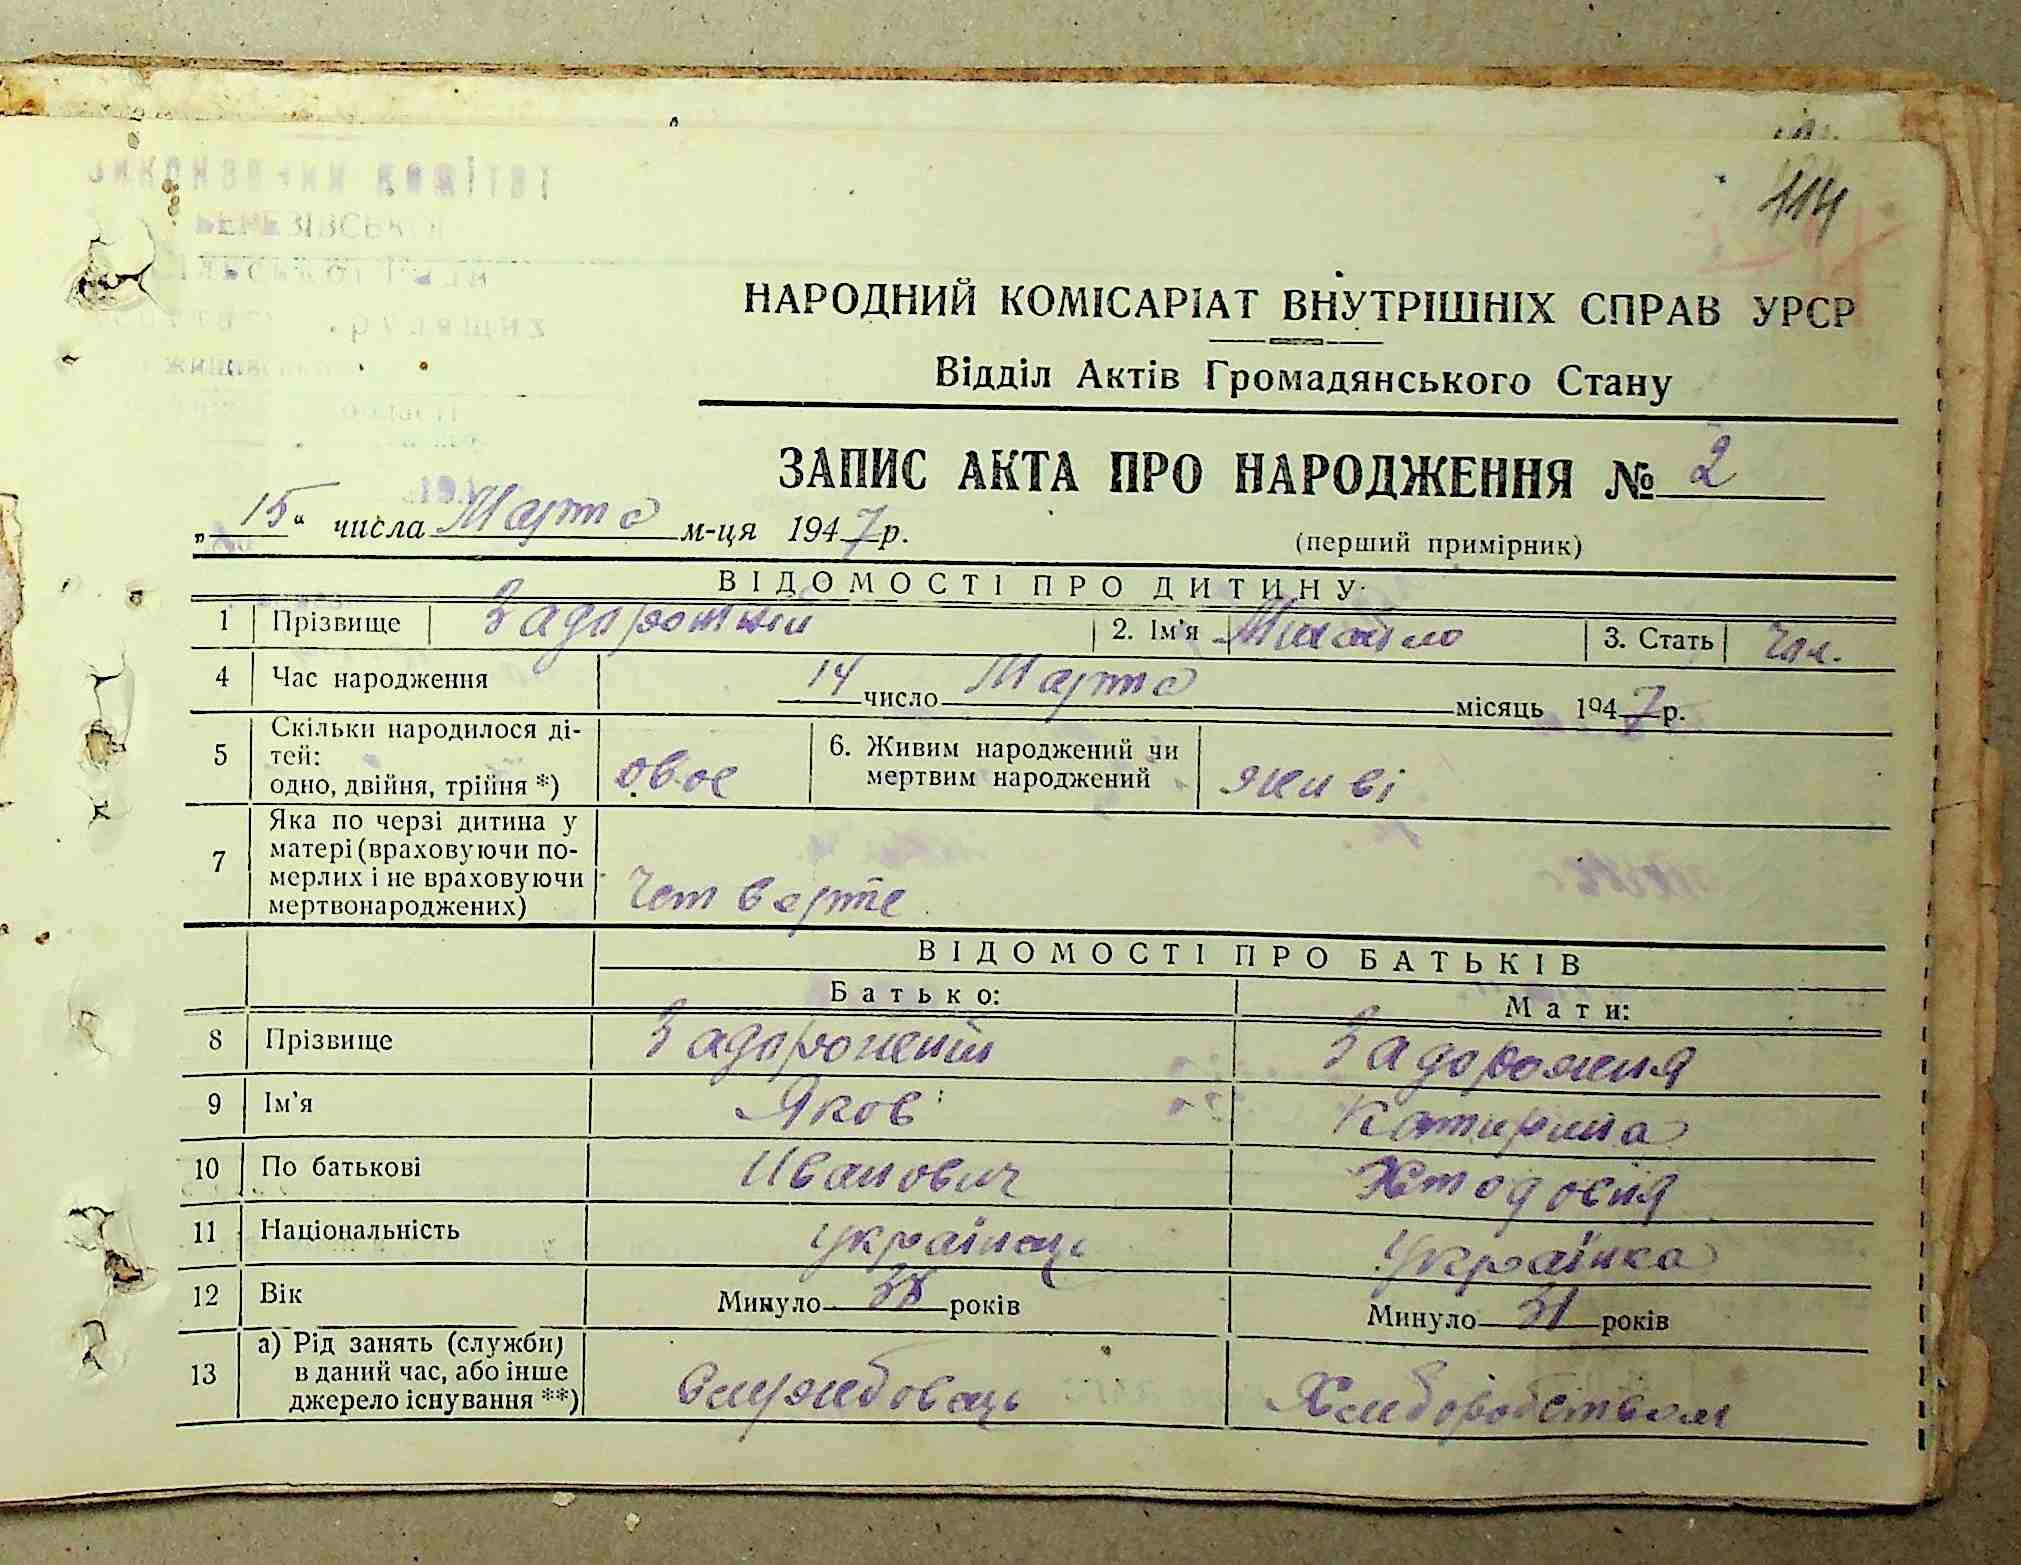 114
НАРОДНИЙ КОМІСАРІАТ ВНУТРІШНІХ СПРАВ УРСР
Відділ Актів Громадянського Стану
ЗАПИС АКТА ПРО НАРОДЖЕННЯ № 2
„15“ числа Марта м-ця 1947 р.
(перший примірник)
ВІДОМОСТІ ПРО ДИТИНУ
1 Прізвище Задорожній 2. Ім'я Михайло 3. Стать Чол.
4 Час народження 14 число Марта місяць 1947 р.
5 Скільки народилося ді-
тей:
одно, двійня, трійня *) двоє 6. Живим народжений чи
мертвим народжений живі
7 Яка по черзі дитина у
матері (враховуючи по-
мерлих і не враховуючи
мертвонароджених) Четверте
ВІДОМОСТІ ПРО БАТЬКІВ
Батько: Мати:
8 Прізвище Задорожній Задорожня
9 Ім'я Яков Катирина
10 По батькові Иванович
11 Національність українець Українка
12 Вік Минуло 38 років Минуло 31 років
13 а) Рід занять (служби)
в даний час, або інше
джерело існування **) Службовець Хлиборобством